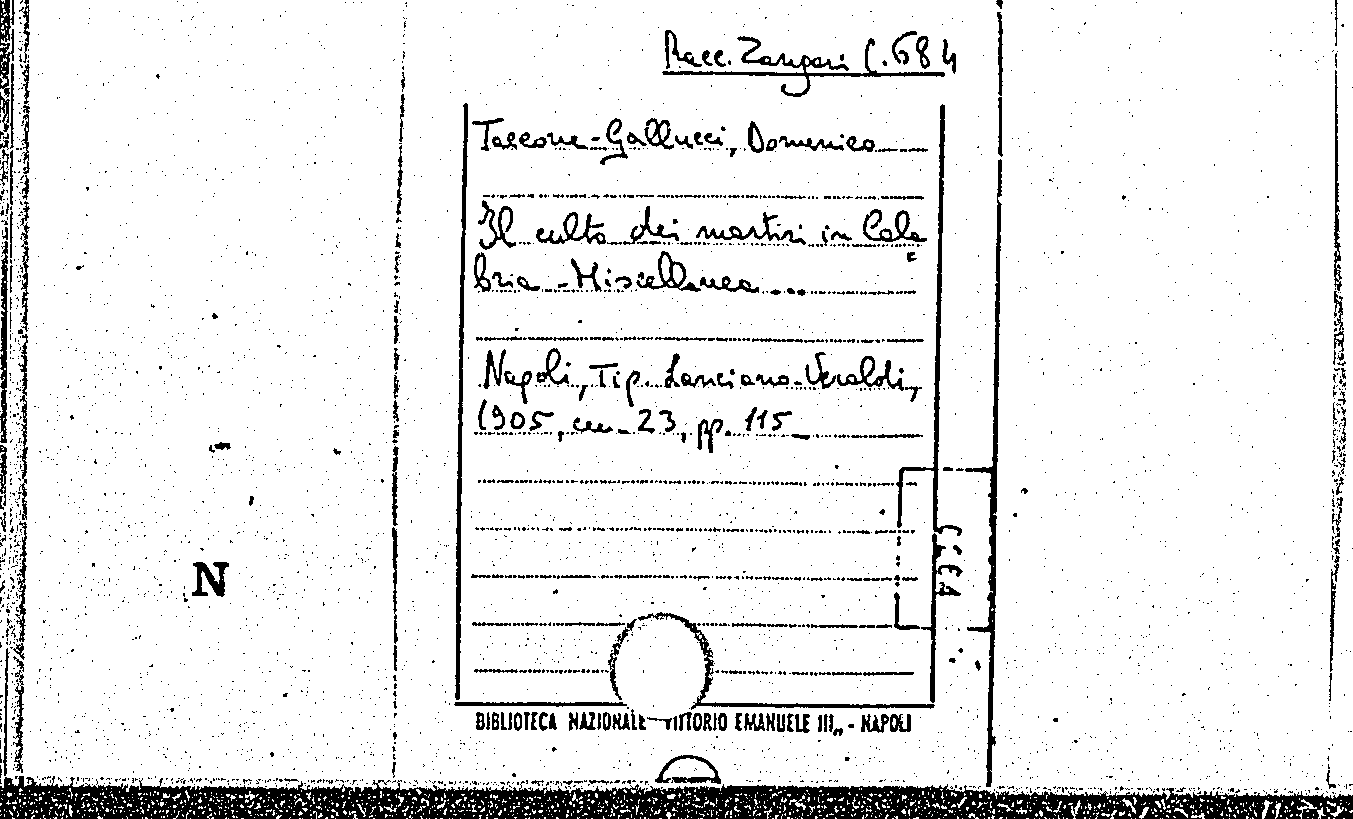 Racc. Zangari C.684
Taccone-Gallucci, Domenico
Il culto dei martiri in Cala
bria - Miscellanea ...
Napoli, Tip. Lanciano-Veraldi,
1905, cm. 23, pp. 115
N
BIBLIOTECA NAZIONALE VITTORIO EMANUELE III„ - NAPOLI